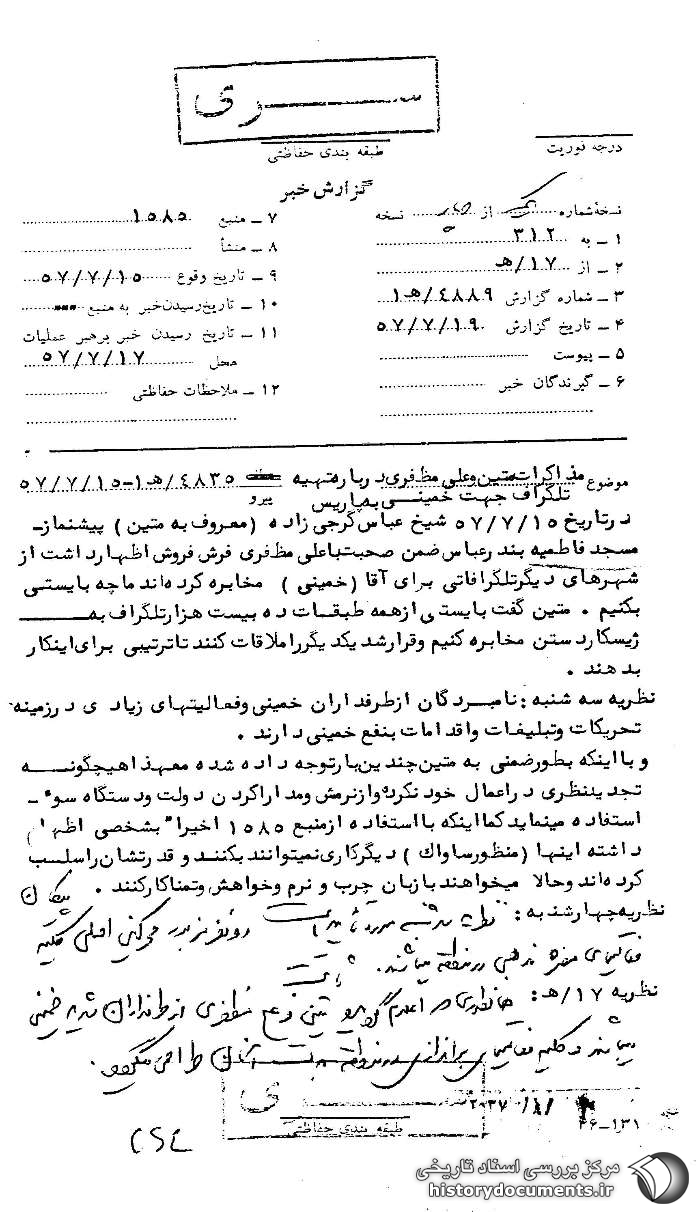 سری
طبقه بندی حفاظتی
درجه فوریت
گزارش خبر
نسخهٔ شماره از نسخه
۱ ـ به ۳۱۲
۲ ـ از ۱۷/هـ
۳ ـ شماره گزارش ۴۸۸۹/هـ۱
۴ ـ تاریخ گزارش ۵۷/۷/۱۹
۵ ـ پیوست
۶ ـ گیرندگان خبر
۷ ـ منبع ۱۵۸۵
۸ ـ منشأ
۹ ـ تاریخ وقوع ۵۷/۷/۱۵
۱۰ ـ تاریخ رسیدن خبر به منبع
۱۱ ـ تاریخ رسیدن خبر برهبر عملیات
محل ۵۷/۷/۱۷
۱۲ ـ ملاحظات حفاظتی
موضوع مذاکرات متین وعلی مظفری درباره تهیه
تلگراف جهت خمینی به پاریس
پیرو ۴۸۳۵/هـ۱-۵۷/۷/۱۵
درتاریخ ۵۷/۷/۱۵ شیخ عباس گرجی زاده (معروف به متین) پیشنماز ـ
مسجد فاطمیه بندرعباس ضمن صحبت با علی مظفری فرش فروش اظهارداشت از
شهرهای دیگر تلگرافاتی برای آقا (خمینی) مخابره کرده اند ماچه بایستی
بکنیم . متین گفت بایستی ازهمه طبقات ده بیست هزارتلگراف به
ژیسکاردستن مخابره کنیم وقرارشد یکدیگررا ملاقات کنند تاترتیبی برای اینکار
بدهند .
نظریه سه شنبه : نامبردگان ازطرفداران خمینی وفعالیتهای زیادی درزمینه
تحریکات وتبلیغات واقدامات بنفع خمینی دارند .
و بااینکه بطورضمنی به متین چندین بارتوجه داده شده معهذا هیچگونه
تجدیدنظری دراعمال خود نکرده وازنرمش ومداراکردن دولت ودستگاه سوء ـ
استفاده مینماید کمااینکه بااستفاده ازمنبع ۱۵۸۵ اخیرا" بشخصی اظهار
داشته اینها (منظورساواک) دیگرکاری نمیتوانند بکنند و قدرتشان راسلب
کرده اند وحالا میخواهند بازبان چرب و نرم وخواهش وتمناکارکنند .
نظریه چهارشنبه : نظریه سه شنبه مورد تأیید است
فعالیتهای مضره مذهبی در منطقه میباشند .
نظریه ۱۷/هـ : همانطوری که اعلام گردید متین و علی مظفری از طرفداران خمینی
میباشند و کلیه فعالیتهای براندازی در منطقه
سری
طبقه بندی حفاظتی
۴۶-۱۳۱
مرکز بررسی اسناد تاریخی
historydocuments.ir